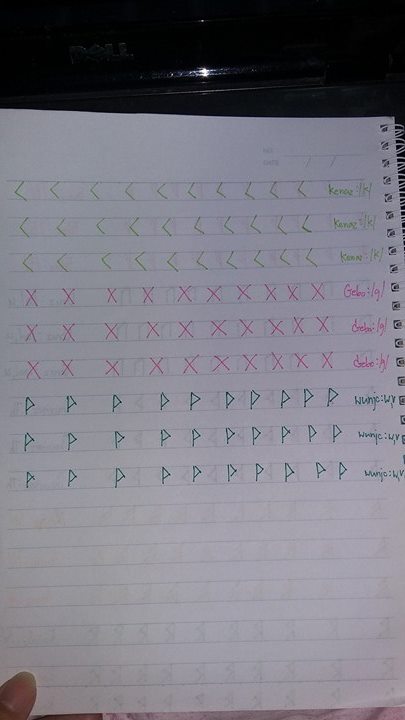 DELL
NO.
DATE / /
ᚲ ᚲ ᚲ ᚲ ᚲ ᚲ ᚲ ᚲ ᚲ ᚲ kenaz:/k/
ᚲ ᚲ ᚲ ᚲ ᚲ ᚲ ᚲ ᚲ ᚲ ᚲ kenaz:/k/
ᚲ ᚲ ᚲ ᚲ ᚲ ᚲ ᚲ ᚲ ᚲ ᚲ kenaz:/k/
ᚷ ᚷ ᚷ ᚷ ᚷ ᚷ ᚷ ᚷ ᚷ ᚷ Gebo:/g/
ᚷ ᚷ ᚷ ᚷ ᚷ ᚷ ᚷ ᚷ ᚷ ᚷ Gebo:/g/
ᚷ ᚷ ᚷ ᚷ ᚷ ᚷ ᚷ ᚷ ᚷ ᚷ Gebo:/g/
ᚹ ᚹ ᚹ ᚹ ᚹ ᚹ ᚹ ᚹ ᚹ ᚹ wunjo:w,v
ᚹ ᚹ ᚹ ᚹ ᚹ ᚹ ᚹ ᚹ ᚹ ᚹ wunjo:w,v
ᚹ ᚹ ᚹ ᚹ ᚹ ᚹ ᚹ ᚹ ᚹ ᚹ wunjo:w,v